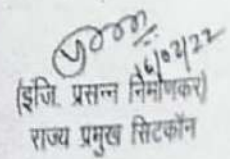 16/02/22
(इंजि. प्रसन्न निमोणकर)
राज्य प्रमुख सिटकॉन